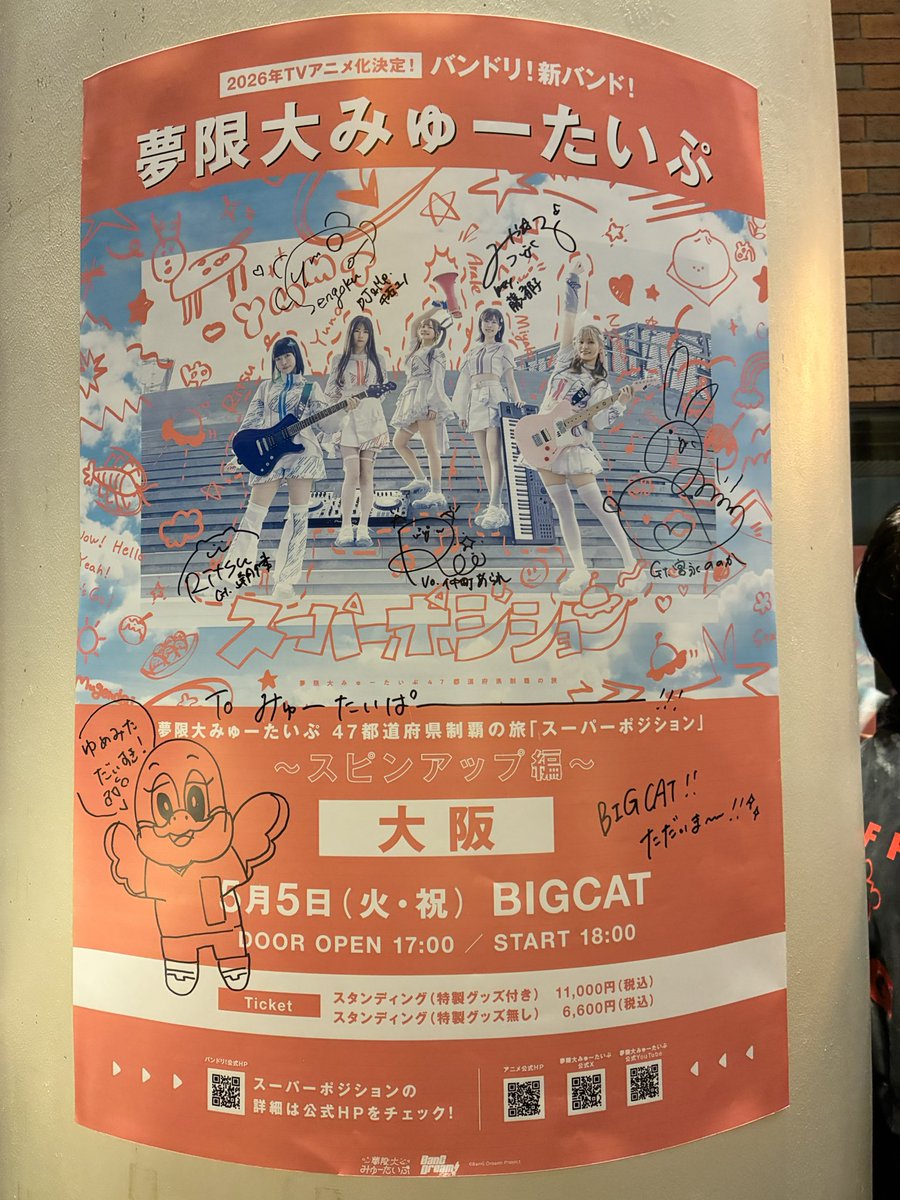 2026年TVアニメ化決定! バンドリ!新バンド!
夢限大みゅーたいぷ
Sengoku
Yuno
DJ&Mp
千石ユノ
Arale
Miyako
Key.
藤都子
Ritsu
Ritsu
Gt.
Vo. 仲町あられ
Gt. 宮永ののか
Wow! Hello
Yeah!
スーパーポジション
夢限大みゅーたいぷ47都道府県制覇の旅
To みゅーたいぱー!!!
夢限大みゅーたいぷ 47都道府県制覇の旅「スーパーポジション」
~スピンアップ編~
ゆめみた
だいすき!
大阪
BIGCAT!!
ただいま~!!
5月5日(火・祝) BIGCAT
DOOR OPEN 17:00 / START 18:00
Ticket
スタンディング(特製グッズ付き) 11,000円(税込)
スタンディング(特製グッズ無し) 6,600円(税込)
バンドリ!公式HP
スーパーポジションの
詳細は公式HPをチェック!
アニメ公式HP
夢限大みゅーたいぷ
公式X
夢限大みゅーたいぷ
公式YouTube
夢限大
みゅーたいぷ
BanG
Dream!
©BanG Dream! Project